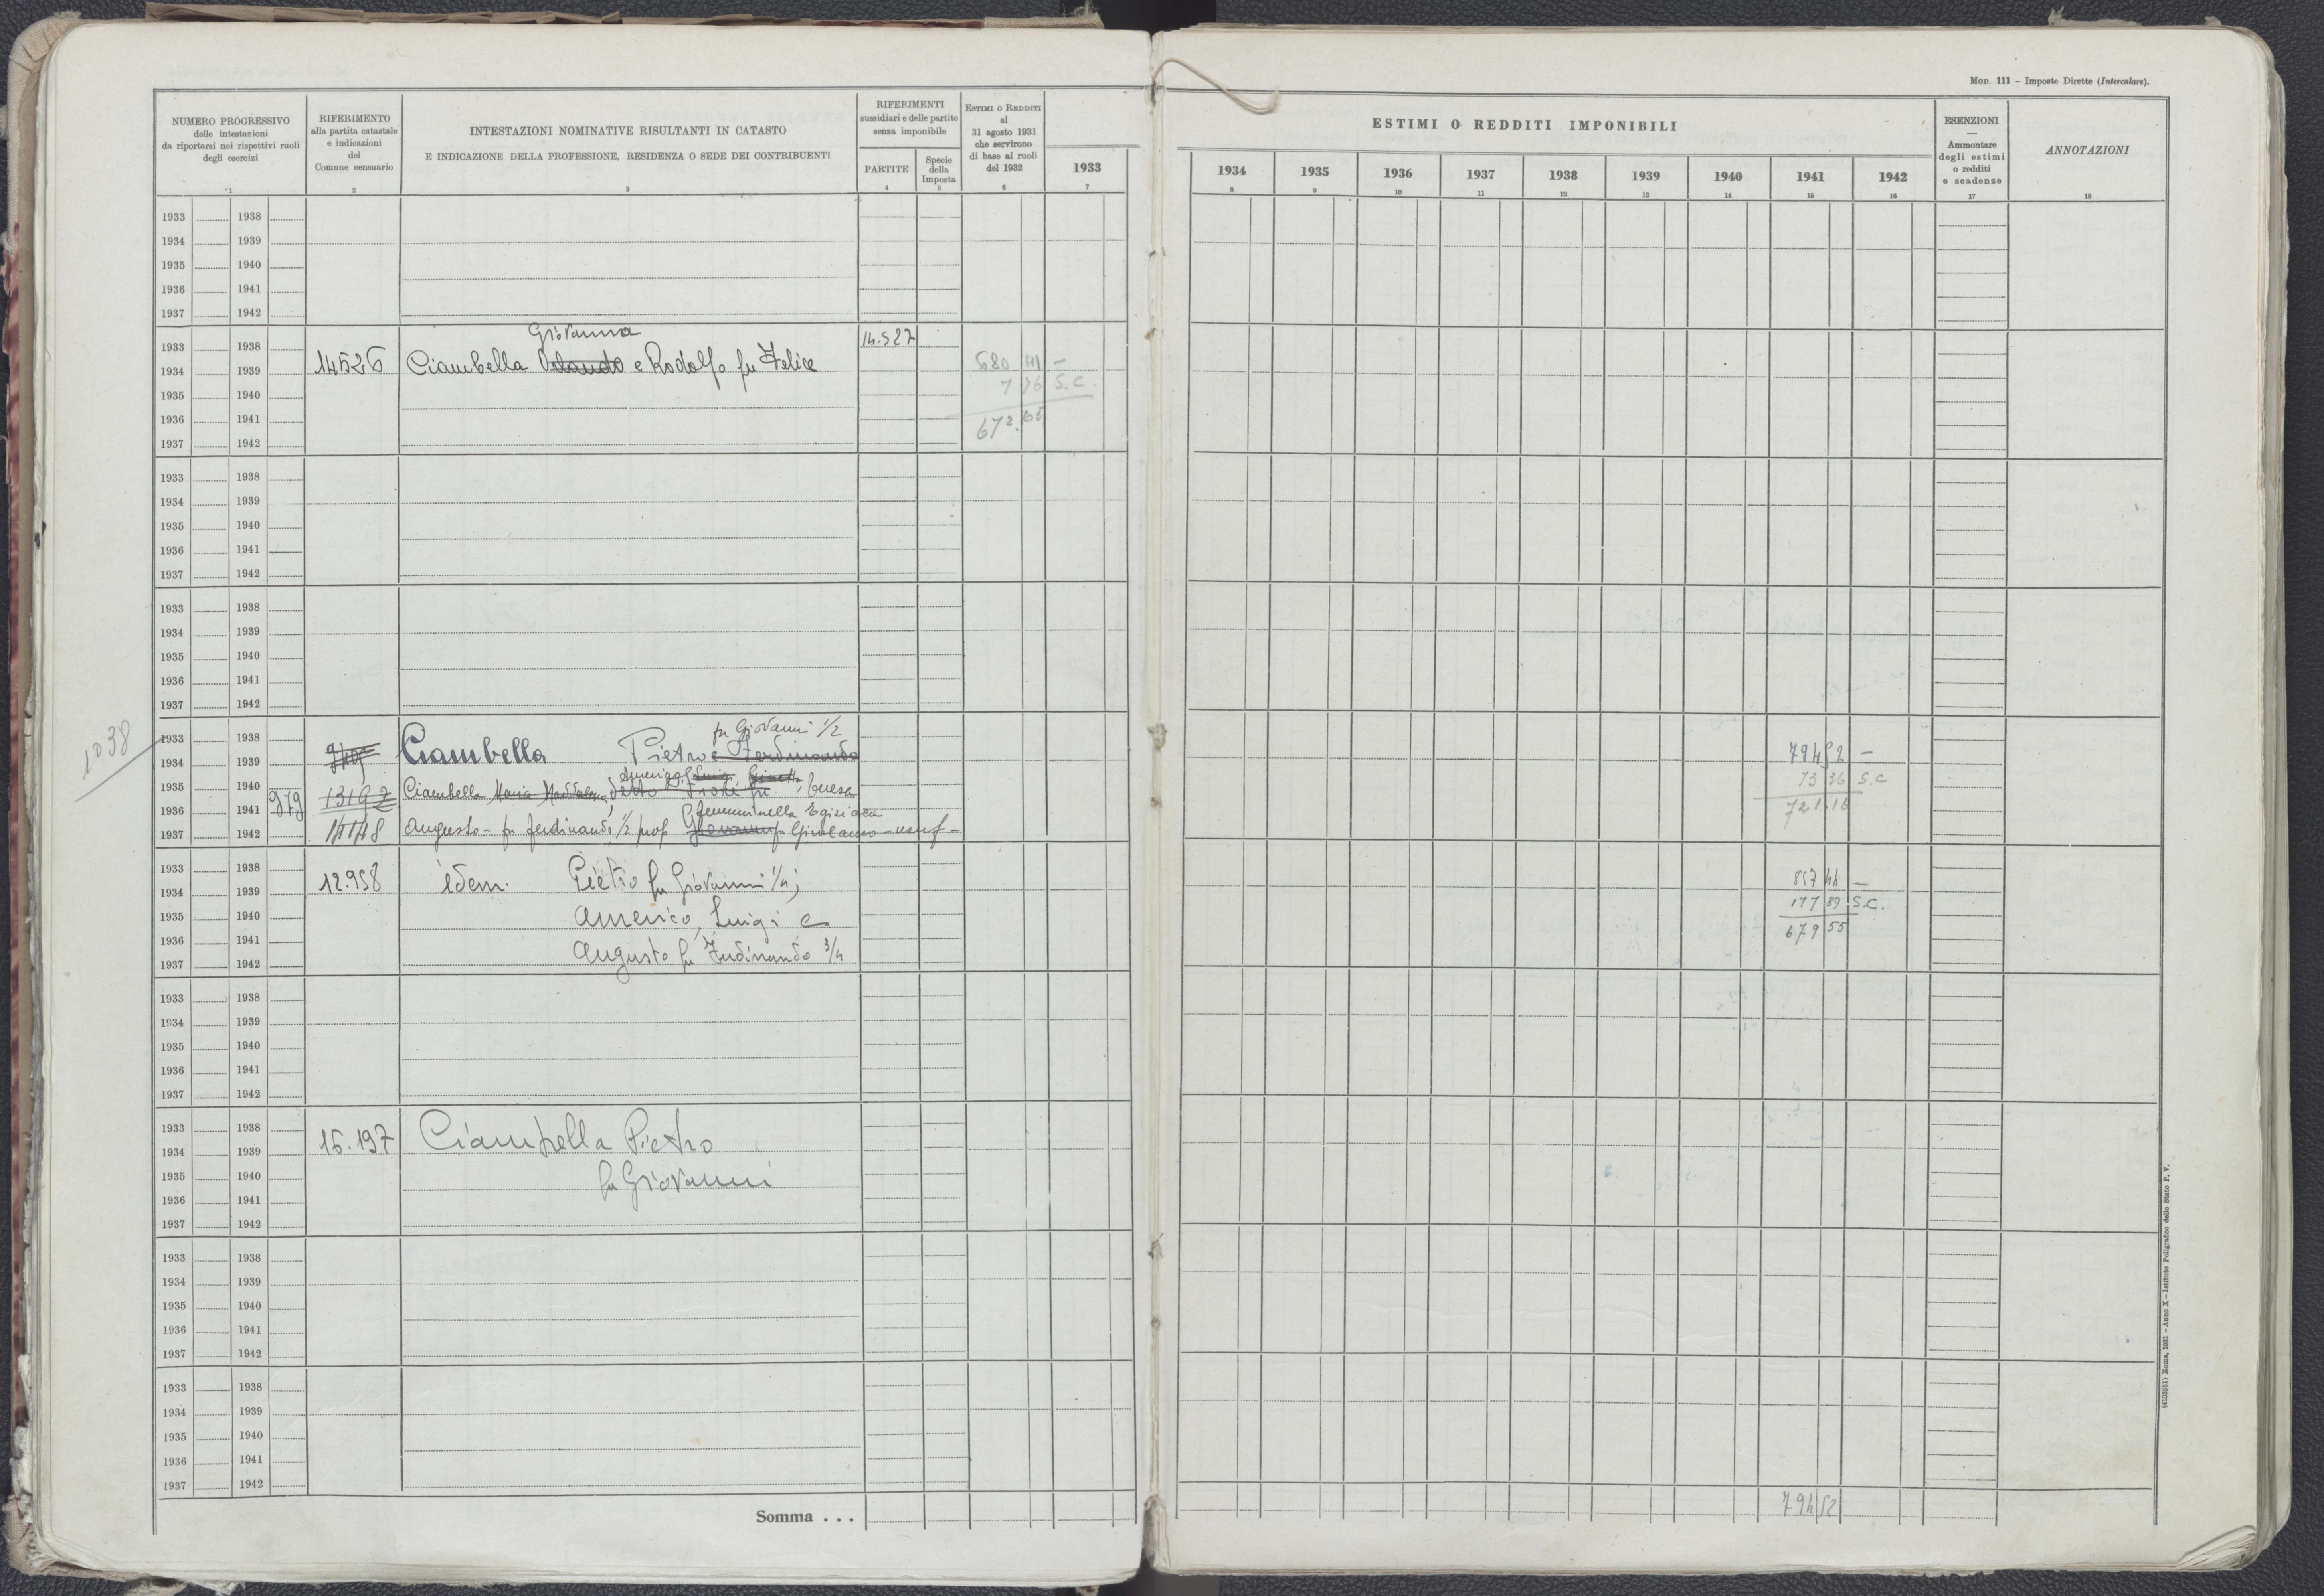 MOD. 111 – Imposte Dirette (Intercalare).
NUMERO PROGRESSIVO
delle intestazioni
da riportarsi nei rispettivi ruoli
degli esercizi
1
RIFERIMENTO
alla partita catastale
e indicazioni
del
Comune censuario
2
INTESTAZIONI NOMINATIVE RISULTANTI IN CATASTO
E INDICAZIONE DELLA PROFESSIONE, RESIDENZA O SEDE DEI CONTRIBUENTI
3
RIFERIMENTI
sussidiari e delle partite
senza imponibile
PARTITE
4
Specie
della
Imposta
5
ESTIMI O REDDITI
al
31 agosto 1931
che servirono
di base ai ruoli
del 1932
6
1933
7
ESTIMI O REDDITI IMPONIBILI
1934 1935 1936 1937 1938 1939 1940 1941 1942
8 9 10 11 12 13 14 15 16
ESENZIONI
—
Ammontare
degli estimi
o redditi
e scadenze
17
ANNOTAZIONI
18
1933 1938
1934 1939
1935 1940
1936 1941
1937 1942
Giovanna
1933 1938 14.527
1934 1939 14526 Ciambella Orlando e Rodolfo fu Felice 680 41 –
1935 1940 7 76 S.C.
1936 1941 672.65
1937 1942
1933 1938
1934 1939
1935 1940
1936 1941
1937 1942
1933 1938
1934 1939
1935 1940
1936 1941
1937 1942
1038
fu Giovanni 1/2
1933 1938
1934 1939 Ciambella Pietro e Ferdinando 794 52 –
Americo, Luigi,
1935 1940 979 13192 Ciambella Maria Maddalena, 73 36 S.C
1936 1941 721 16
Egiziaca
1937 1942 14148 Augusto – fu Ferdinando 1/2 prop Girolamo – usuf –
1933 1938
1934 1939 12.958 idem. Pietro fu Giovanni 1/4; 857 44 –
1935 1940 Americo, Luigi e 177 89 S.C.
1936 1941 679 55
1937 1942 Augusto fu Ferdinando 3/4
1933 1938
1934 1939
1935 1940
1936 1941
1937 1942
1933 1938
1934 1939 15.197 Ciambella Pietro
1935 1940 fu Giovanni
1936 1941
1937 1942
1933 1938
1934 1939
1935 1940
1936 1941
1937 1942
1933 1938
1934 1939
1935 1940
1936 1941
1937 1942
Somma . . . 794 52
(4103631) Roma, 1931 – Anno X – Istituto Poligrafico dello Stato P. V.